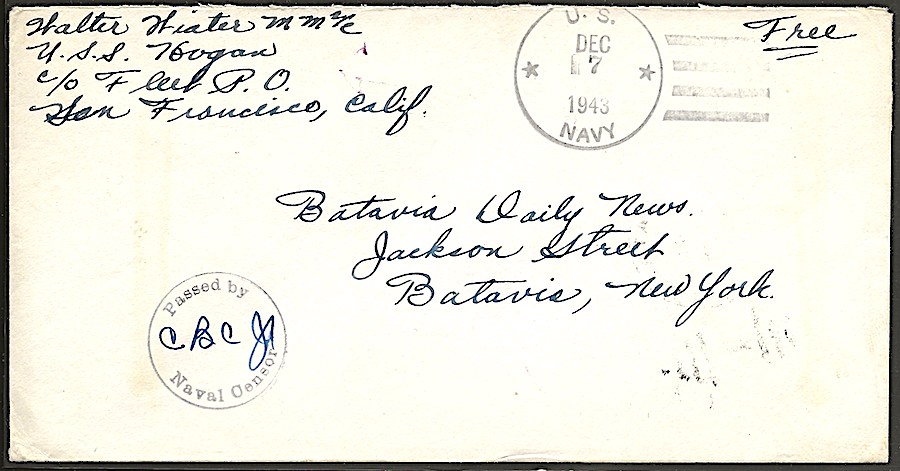 Walter Wiater MM2/c
U.S.S. Hogan
c/o Fleet P.O.
San Francisco, Calif.
U. S.
DEC
7
1943
NAVY
Free
Batavia Daily News.
Jackson Street
Batavia, New York.
Passed by
CBC Jr
Naval Censor